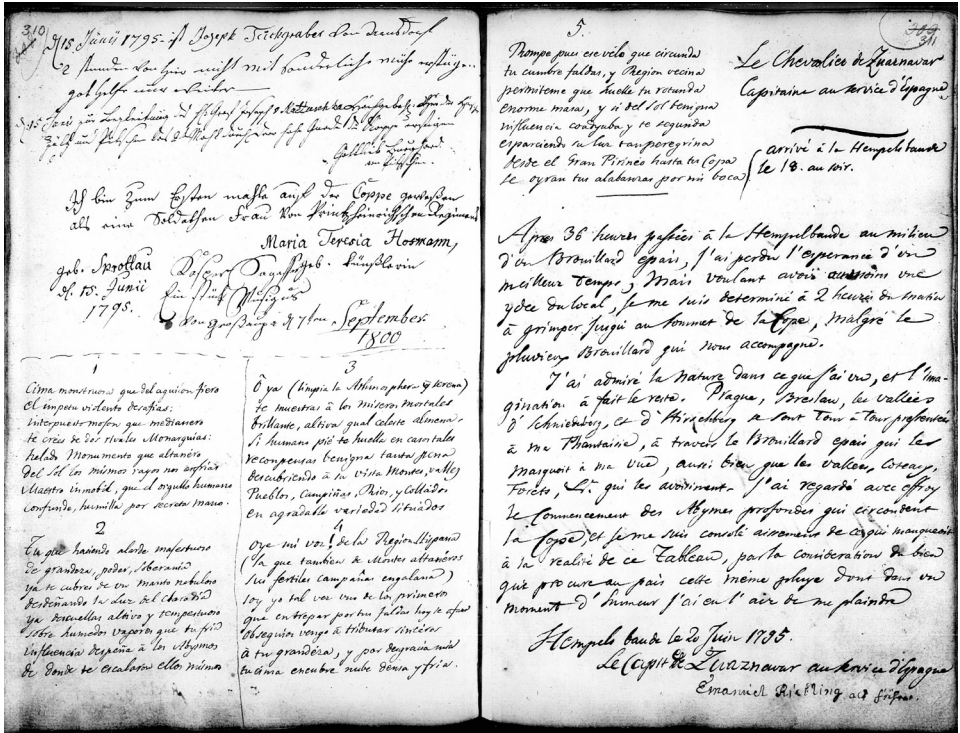 310
d. 15. Junii 1795 ist Joseph Teichgraber von
2 stunden von hier nicht mit sonderliche mühe
gott helfe mir weiter
Ich bin zum Ersten mahle auf der Coppe gewesen
als eine Soldathen Frau von Printz Heinrichschen Regiment
Maria Teresia Hosmann,
geb. Sprottau
d. 15. Junii
1795.
September
1800
1
Cima monstruosa que del aquilon fiero
el impetu violento desafias:
interpuesto mojon que medianero
te crees de dos rivales Monarquias:
helado Monumento que altanéro
del Sol los mismos rayos nos enfrias
Maestro inmobil, que el orgullo humano
confunde, humilla por secreta mano.
2
Tu que haciendo alarde majestuoso
de grandeza, poder, soberania
ya te cubres de un manto nebuloso
desdeñando la Luz del claro dia
ya descuellas altivo y tempestuoso
sobre humedos vapores que tu fria
influencia despeña à los Abysmos
de donde te escalaron ellos mismos
3
O ya (limpia la Athmosphera y serena)
te muestras à los miseros mortales
brillante, altiva qual celeste almena.
Si humano pié te huella en casos tales
recompensas benigna tanta pena
descubriendo à su vista Montes, valles
Pueblos, Campiñas, Rios, y Collados
en agradable variedad situados
4
Oye mi voz! de la Region Hispana
(la que tambien de Montes altanéros
sus fertiles campañas engalana)
soy yo tal vez uno de los primeros
que entrepar por tus faldas hoy se afana
obsequios vengo à tributar sincéros
à tu grandéza, y por desgracia mia
tu cima encubre nube densa y fria.
5.
309
311
Rompe pues ese vélo que circunda
tu cumbre faldas, y Region vecina
permiteme que huelle tu rotunda
enorme masa, y si del sol benigna
influencia coadyuba y te segunda
esparciendo su luz tan peregrina
desde el Gran Pirinéo hasta tu Copa
se oyran tus alabanzas por mi boca
Le Chevalier de Zuaznavar
Capitaine au service d'Espagne
arrivé à la Hempelsbaude
le 18. au soir.
Apres 36 heures passées à la Hempelbaude au milieu
d'un Brouillard epais, j'ai perdu l'esperance d'un
meilleur Temps; Mais voulant avoir au moins une
ydée du local, je me suis determiné à 2 heures du matin
à grimper jusqu'au sommet de la Cope, malgré le
pluvieux Brouillard qui nous accompagne.
J'ai admiré la Nature dans ce que j'ai vu, et l'ima-
gination à fait le reste. Prague, Breslau, les vallées
d'Schmiedeberg, et d'Hirschberg se sont Tour à Tour presentées
à ma Phantaisie, à travers le Brouillard epais qui les
masquoit à ma vue, aussi bien que les vallées, coteaux,
Forets, &c. qui les avoisinent. J'ai regardé avec effroy
le Commencement des Abymes profondes qui circondent
la Cope, et je me suis consolé aisement de ce qui manquoit
à la realité de ce Tableau, par la consideration du bien
que procure au pais cette même pluye dont dans un
moment d'humeur j'ai eu l'air de me plaindre
Hempels baude le 20 Juin 1795.
Le Capit de Zuaznavar au service d'Espagne
Emanuel Riesling